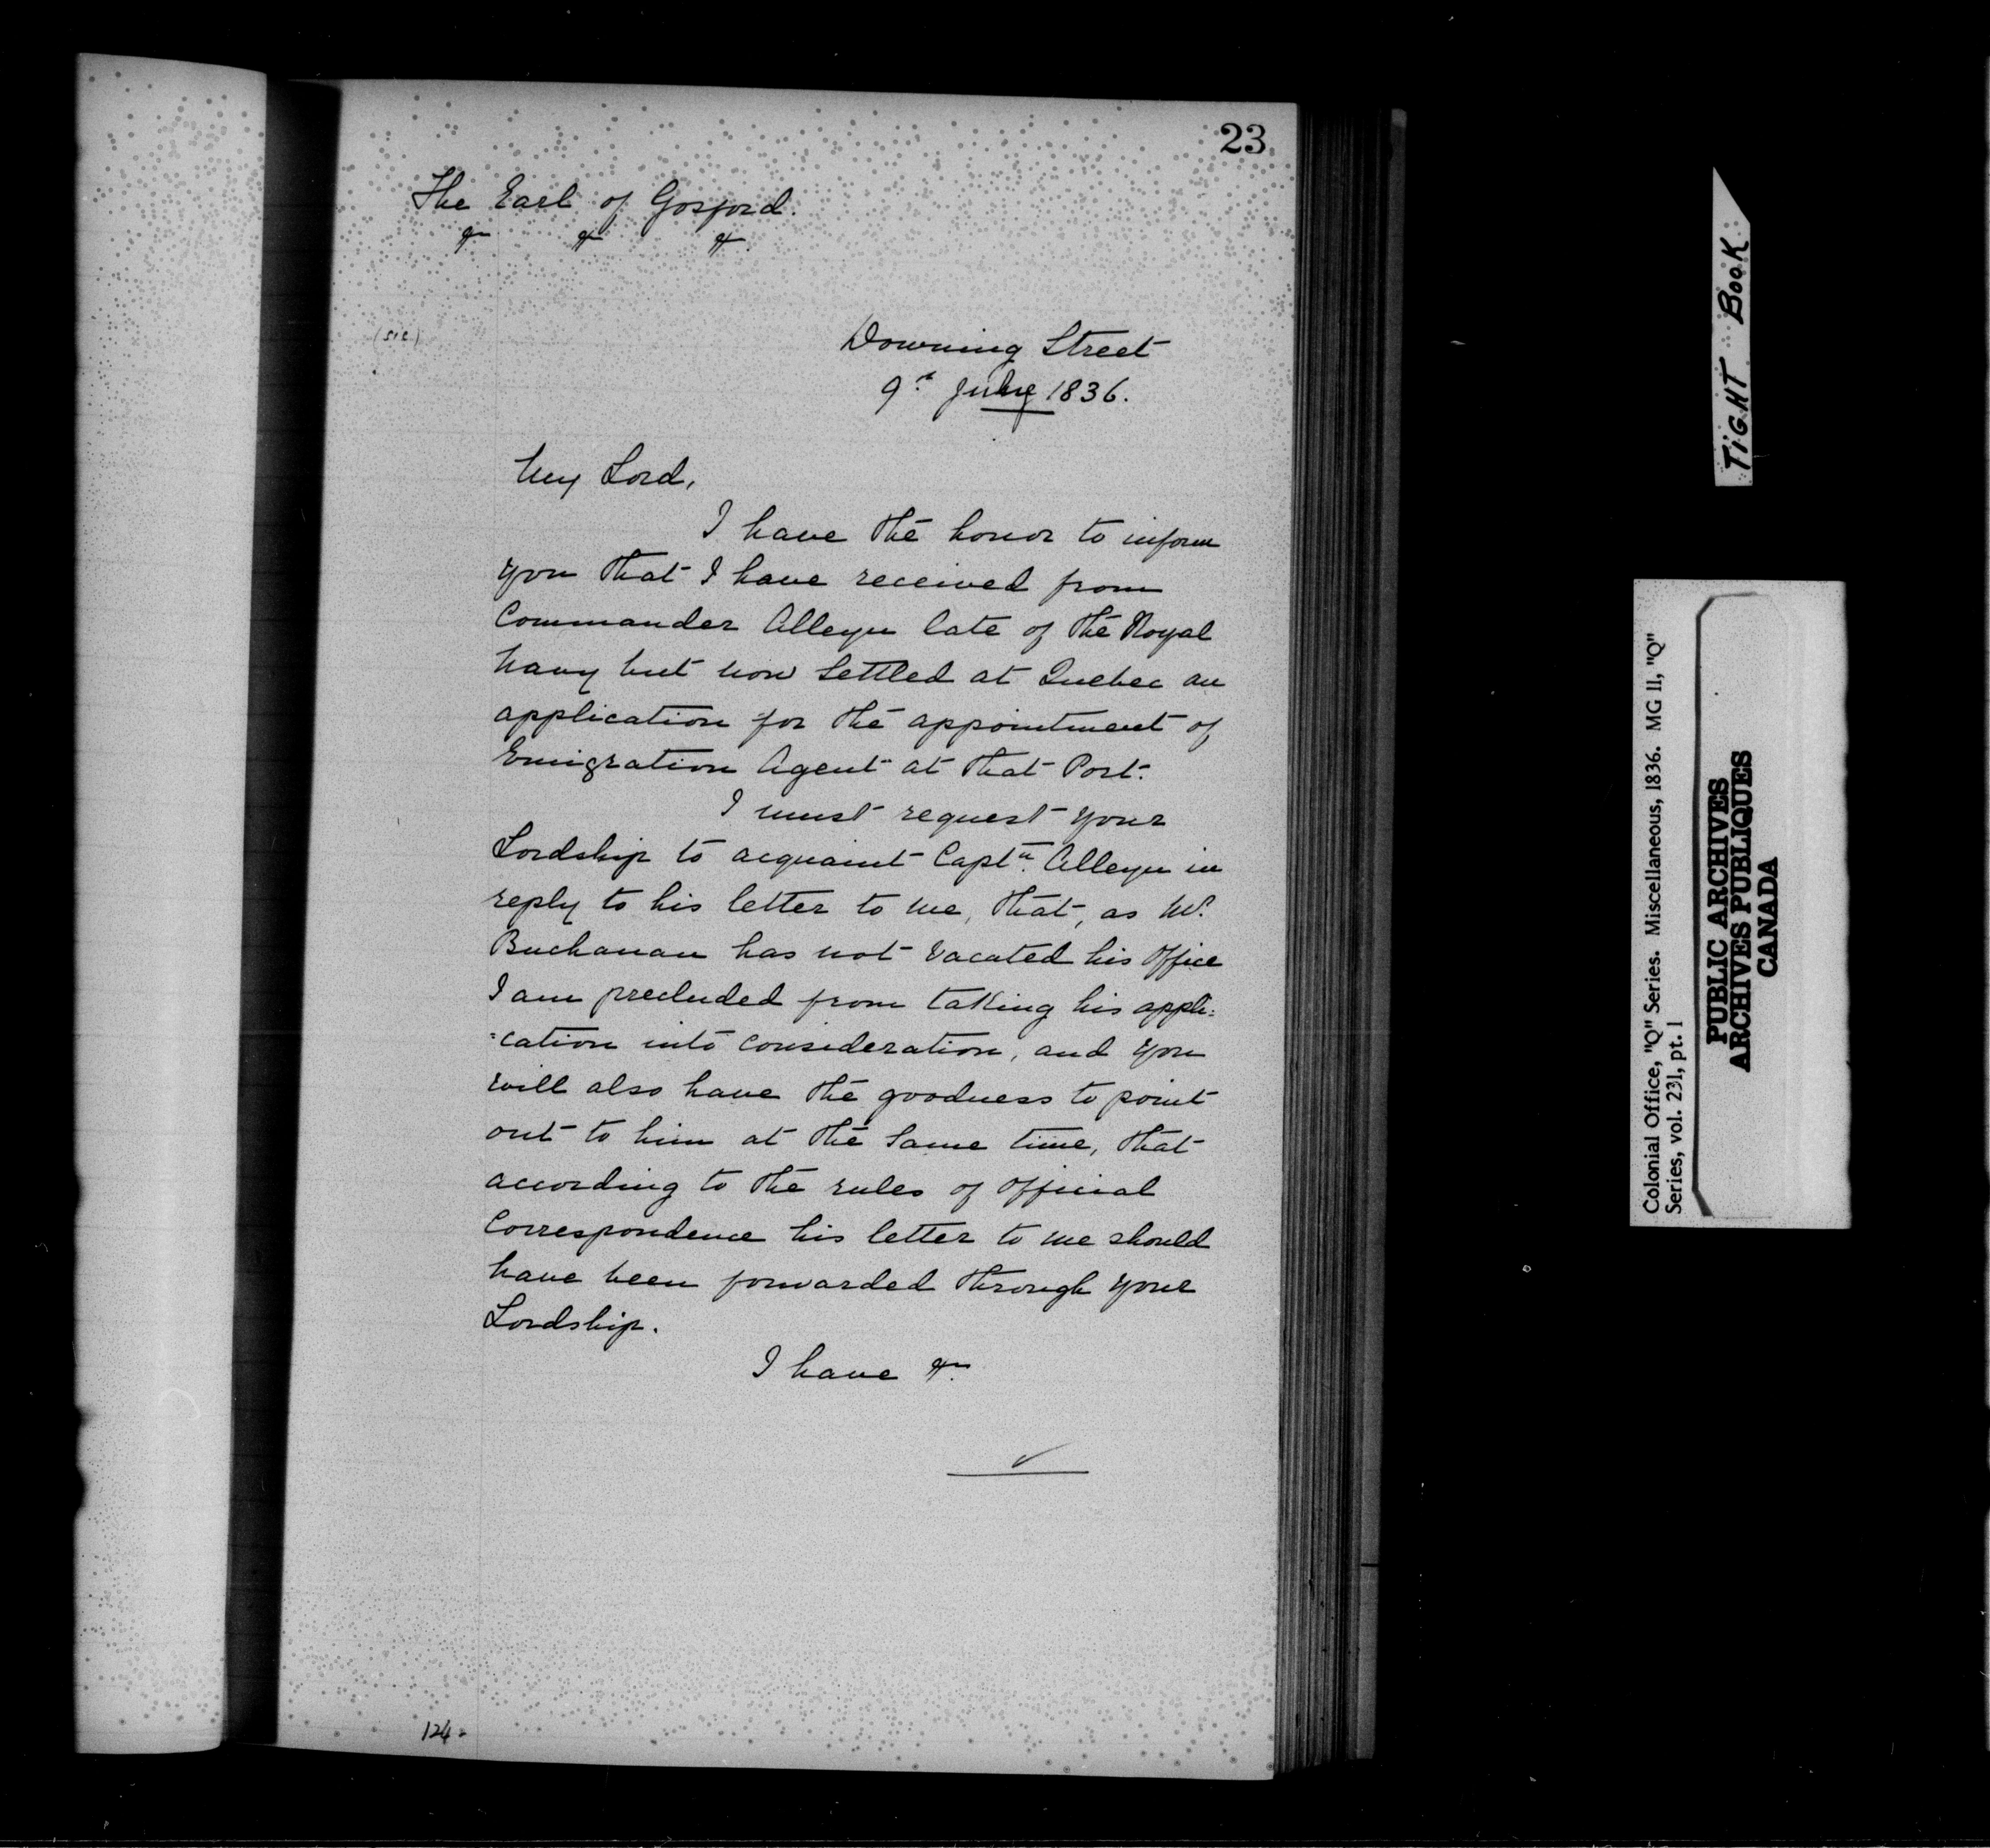 23
The Earl of Gosford.
&c &c &c
(sic)
Downing Street
9th July 1836.
My Lord,
I have the honor to inform
you that I have received from
Commander Alleyn late of the Royal
Navy but now settled at Quebec an
application for the appointment of
Emigration Agent at that Port.
I must request your
Lordship to acquaint Captn. Alleyn in
reply to his letter to me, that, as Mr.
Buchanan has not vacated his office
I am precluded from taking his appli=
=cation into consideration, and you
will also have the goodness to point
out to him at the same time, that
according to the rules of official
Correspondence his letter to me should
have been forwarded through your
Lordship.
I have &c.
124
TIGHT BOOK
Colonial Office, "Q" Series. Miscellaneous, 1836. MG 11, "Q"
Series, vol. 231, pt. 1
PUBLIC ARCHIVES
ARCHIVES PUBLIQUES
CANADA